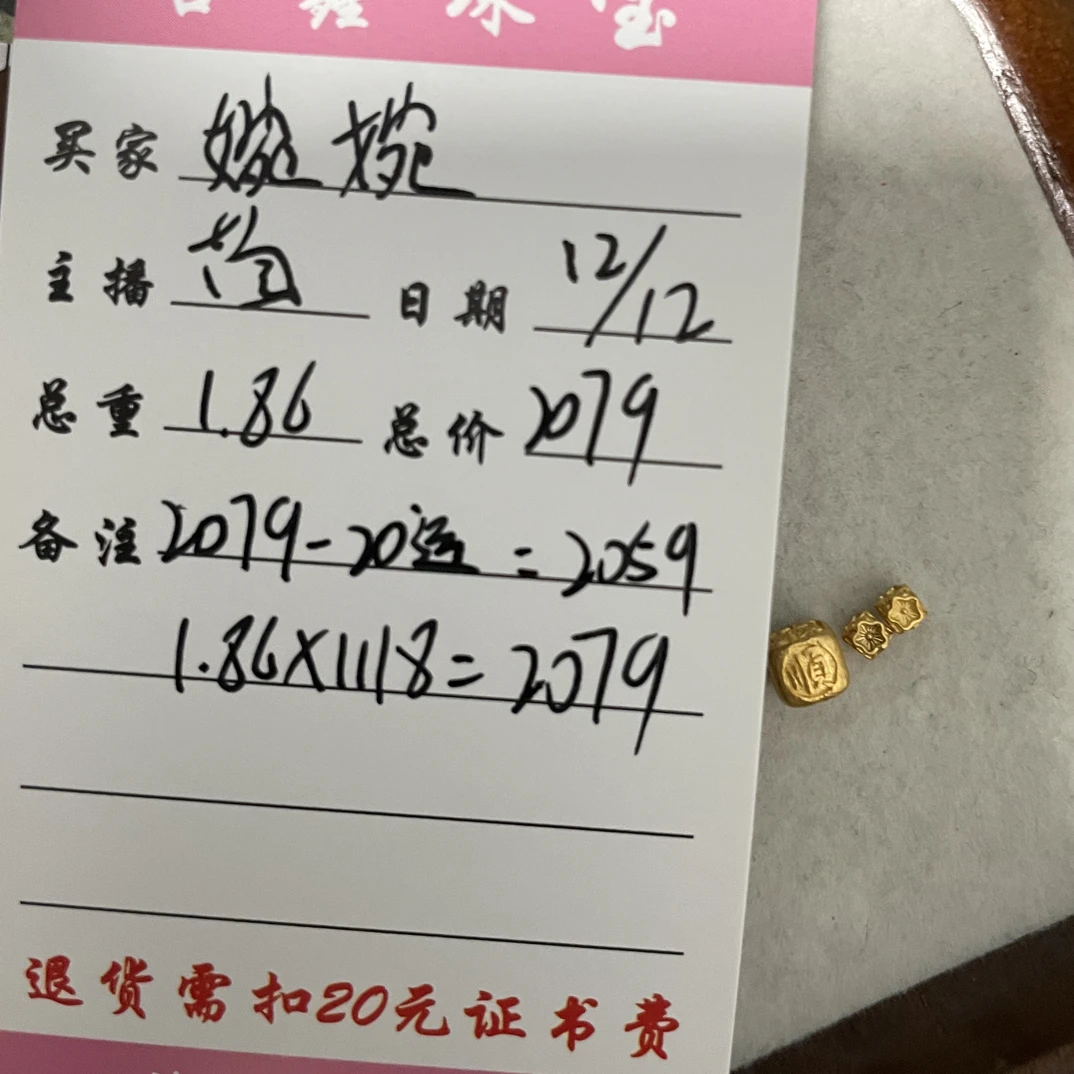 鑫珠宝
买家 婉婉
主播 日期 12/12
总重 1.86 总价 2079
备注 2079-20运=2059
1.86×1118=2079
退货需扣20元证书费
順